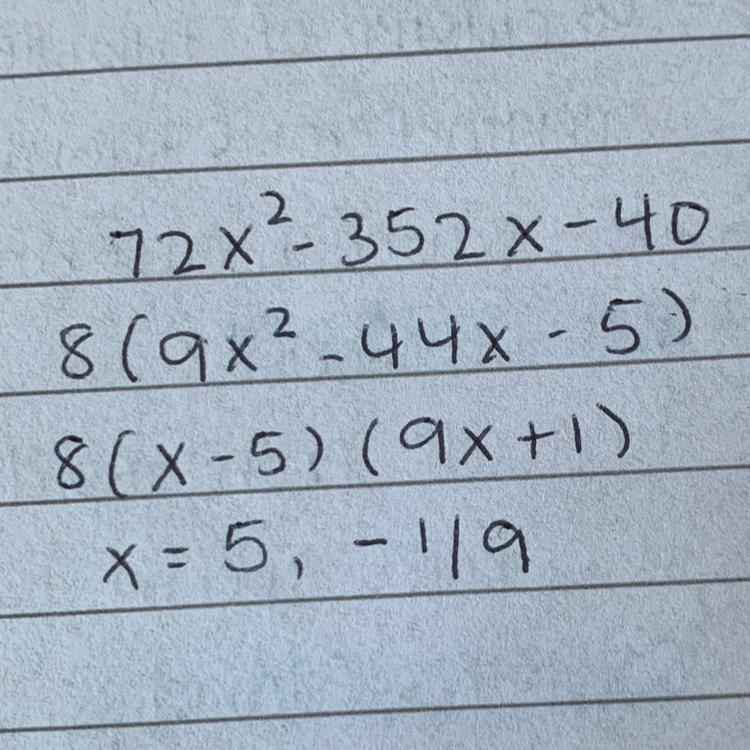 72x² - 352x - 40
8(9x² - 44x - 5)
8(x - 5) (9x + 1)
x = 5, - 1/9